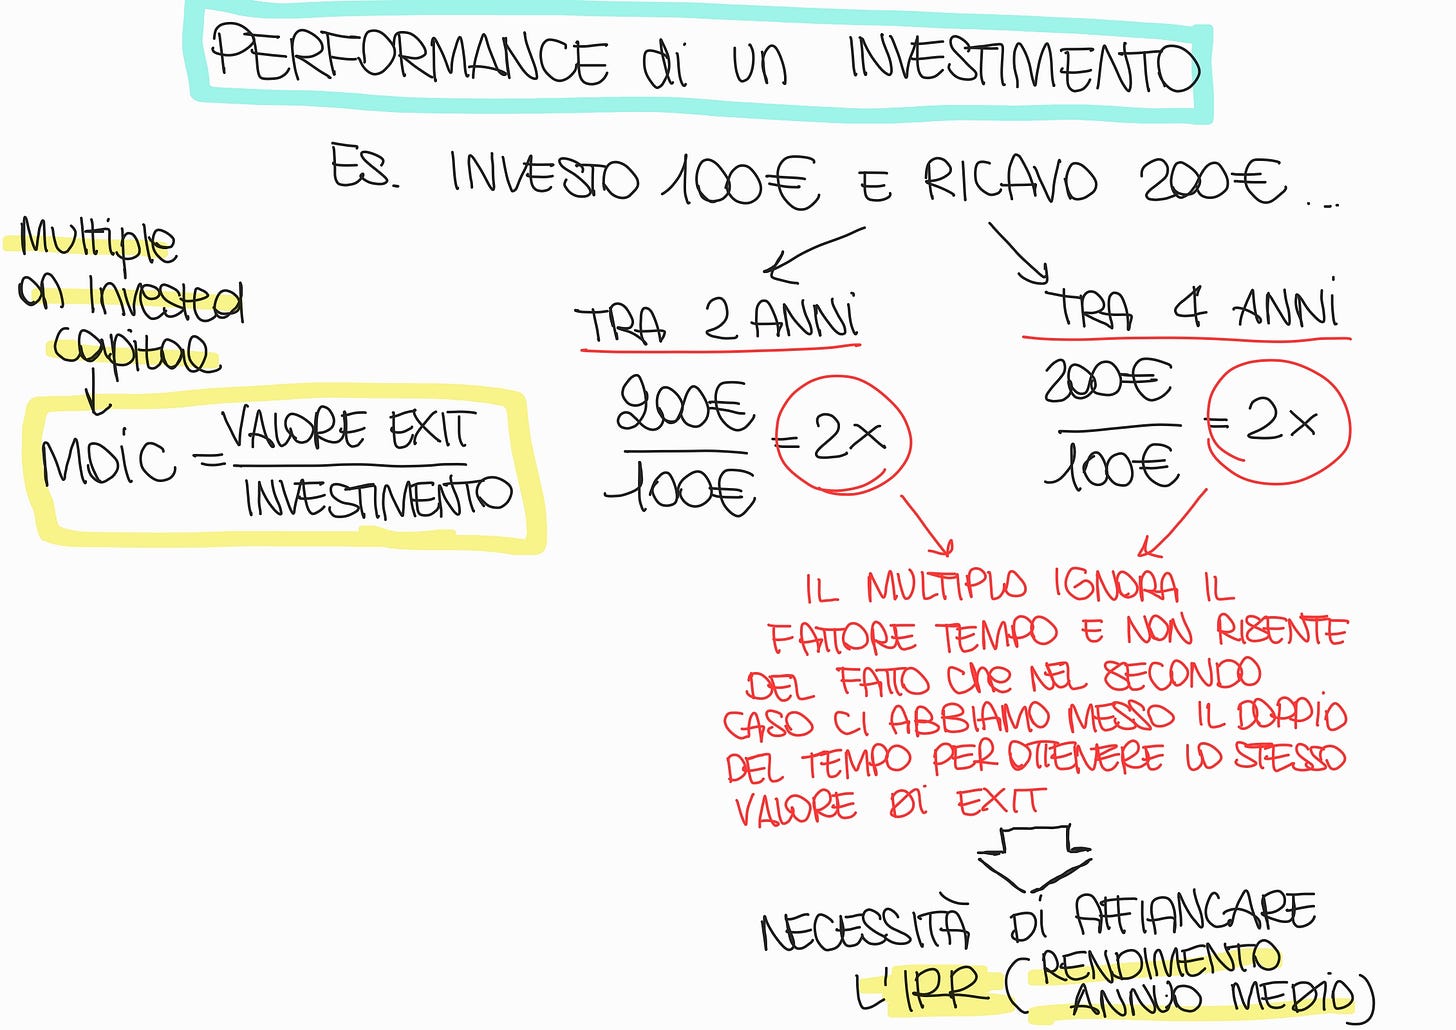 PERFORMANCE di un INVESTIMENTO
ES. INVESTO 100€ E RICAVO 200€ ...
Multiple
on Invested
Capital
MOiC = VALORE EXIT
INVESTIMENTO
TRA 2 ANNi
200€
100€
= 2x
TRA 4 ANNi
200€
100€
= 2x
IL MULTIPLO IGNORA IL
FATTORE TEMPO E NON RISENTE
DEL FATTO Che NEL SECONDO
CASO CI ABBIAMO MESSO IL DOPPiO
DEL TEMPO PER OTTENERE LO STESSO
VALORE Di EXIT
NECESSITÀ Di AFFIANCARE
L'IRR (RENDIMENTO
ANNUO MEDiO)